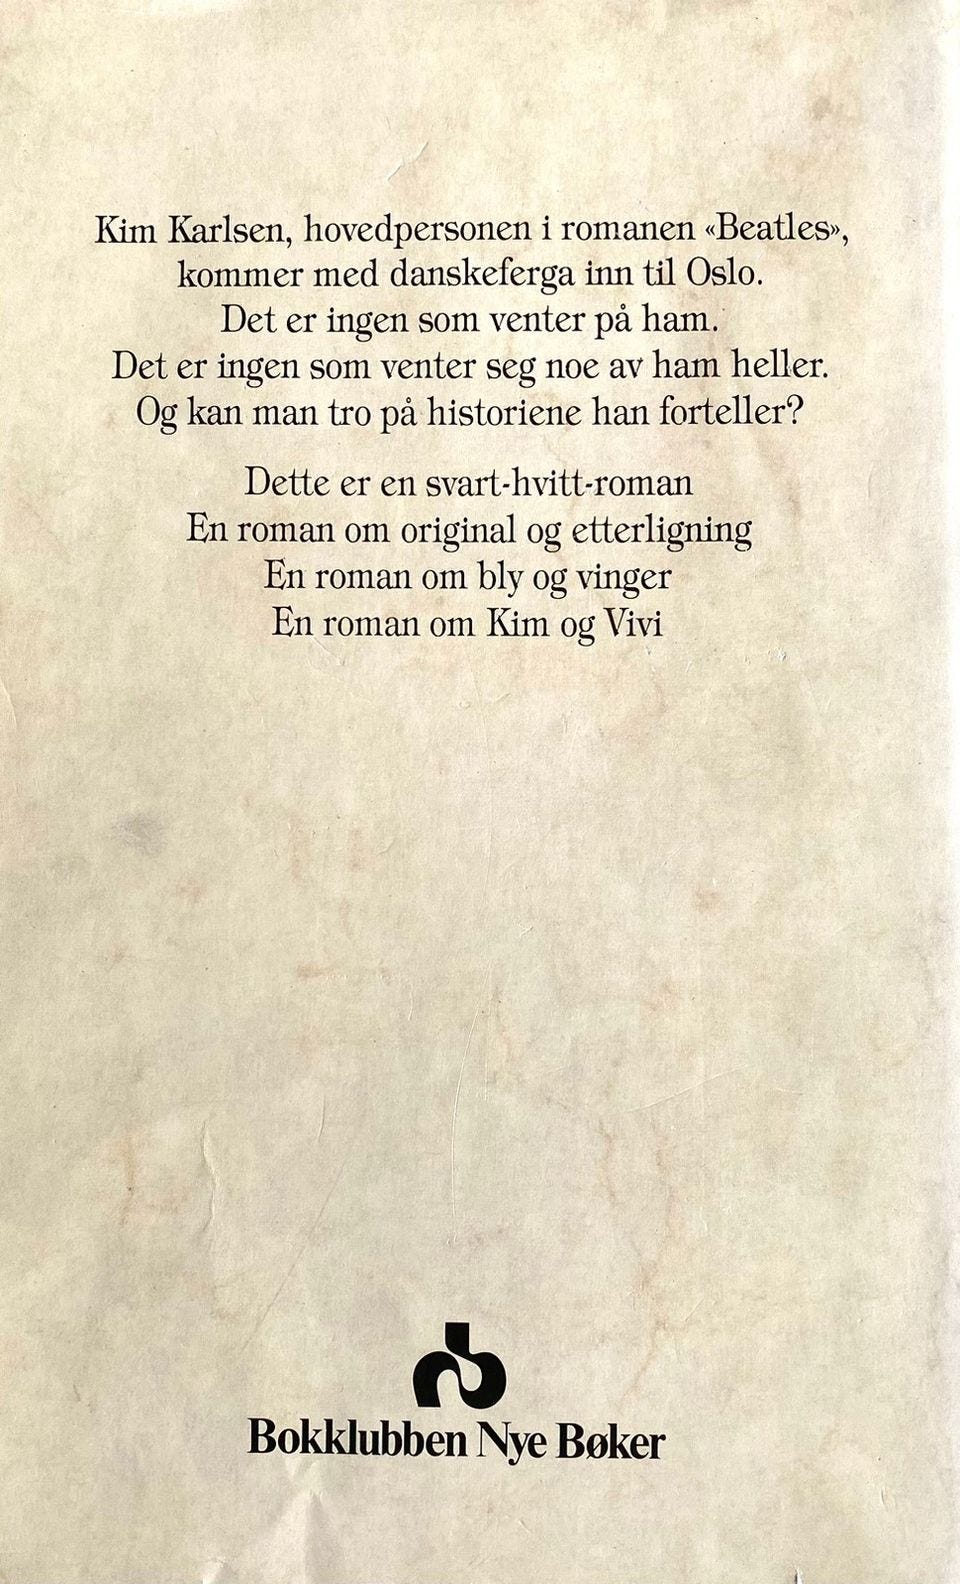 Kim Karlsen, hovedpersonen i romanen «Beatles»,
kommer med danskeferga inn til Oslo.
Det er ingen som venter på ham.
Det er ingen som venter seg noe av ham heller.
Og kan man tro på historiene han forteller?
Dette er en svart-hvitt-roman
En roman om original og etterligning
En roman om bly og vinger
En roman om Kim og Vivi
Bokklubben Nye Bøker